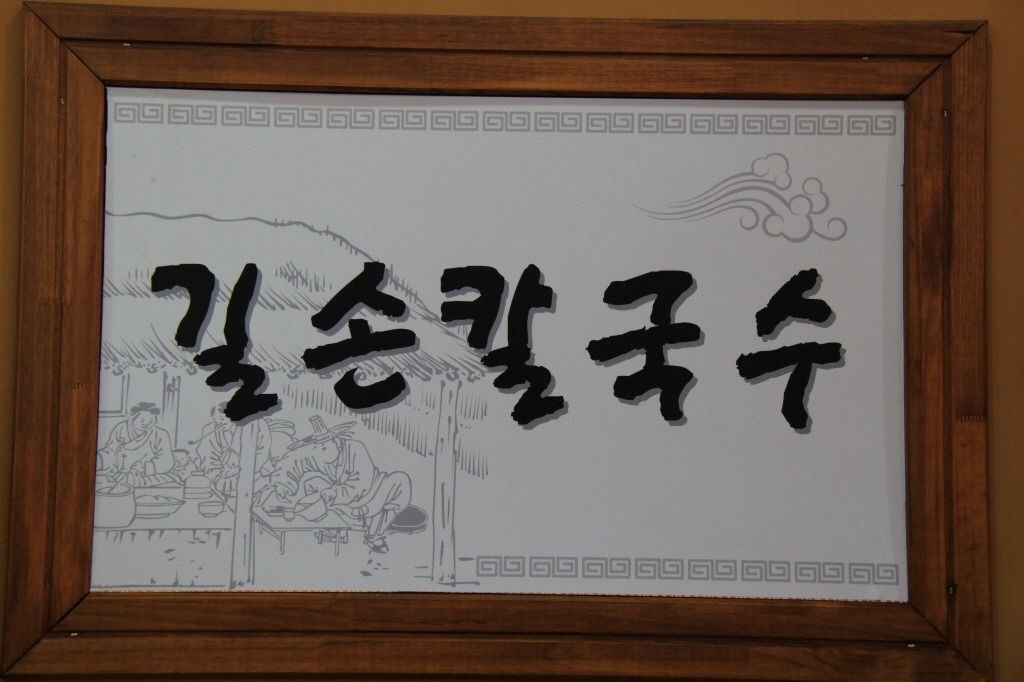 길손칼국수